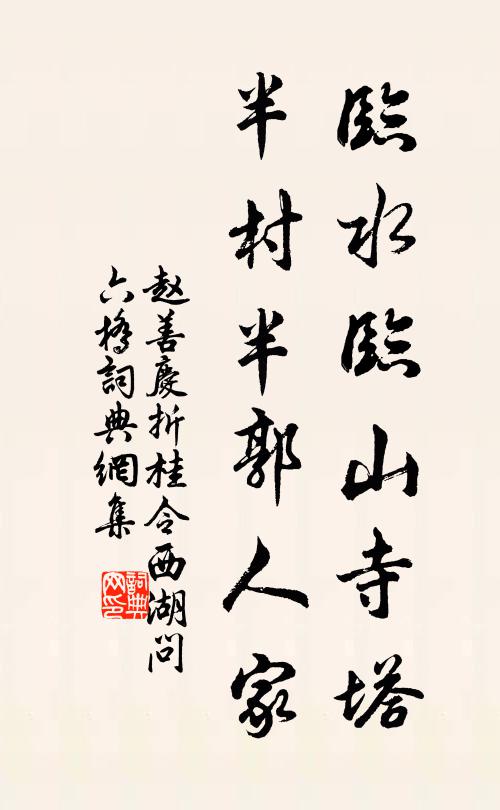 臨水臨山寺塔
半村半郭人家
赵善慶折桂令西湖問
六橋詞典網集
詞典网印